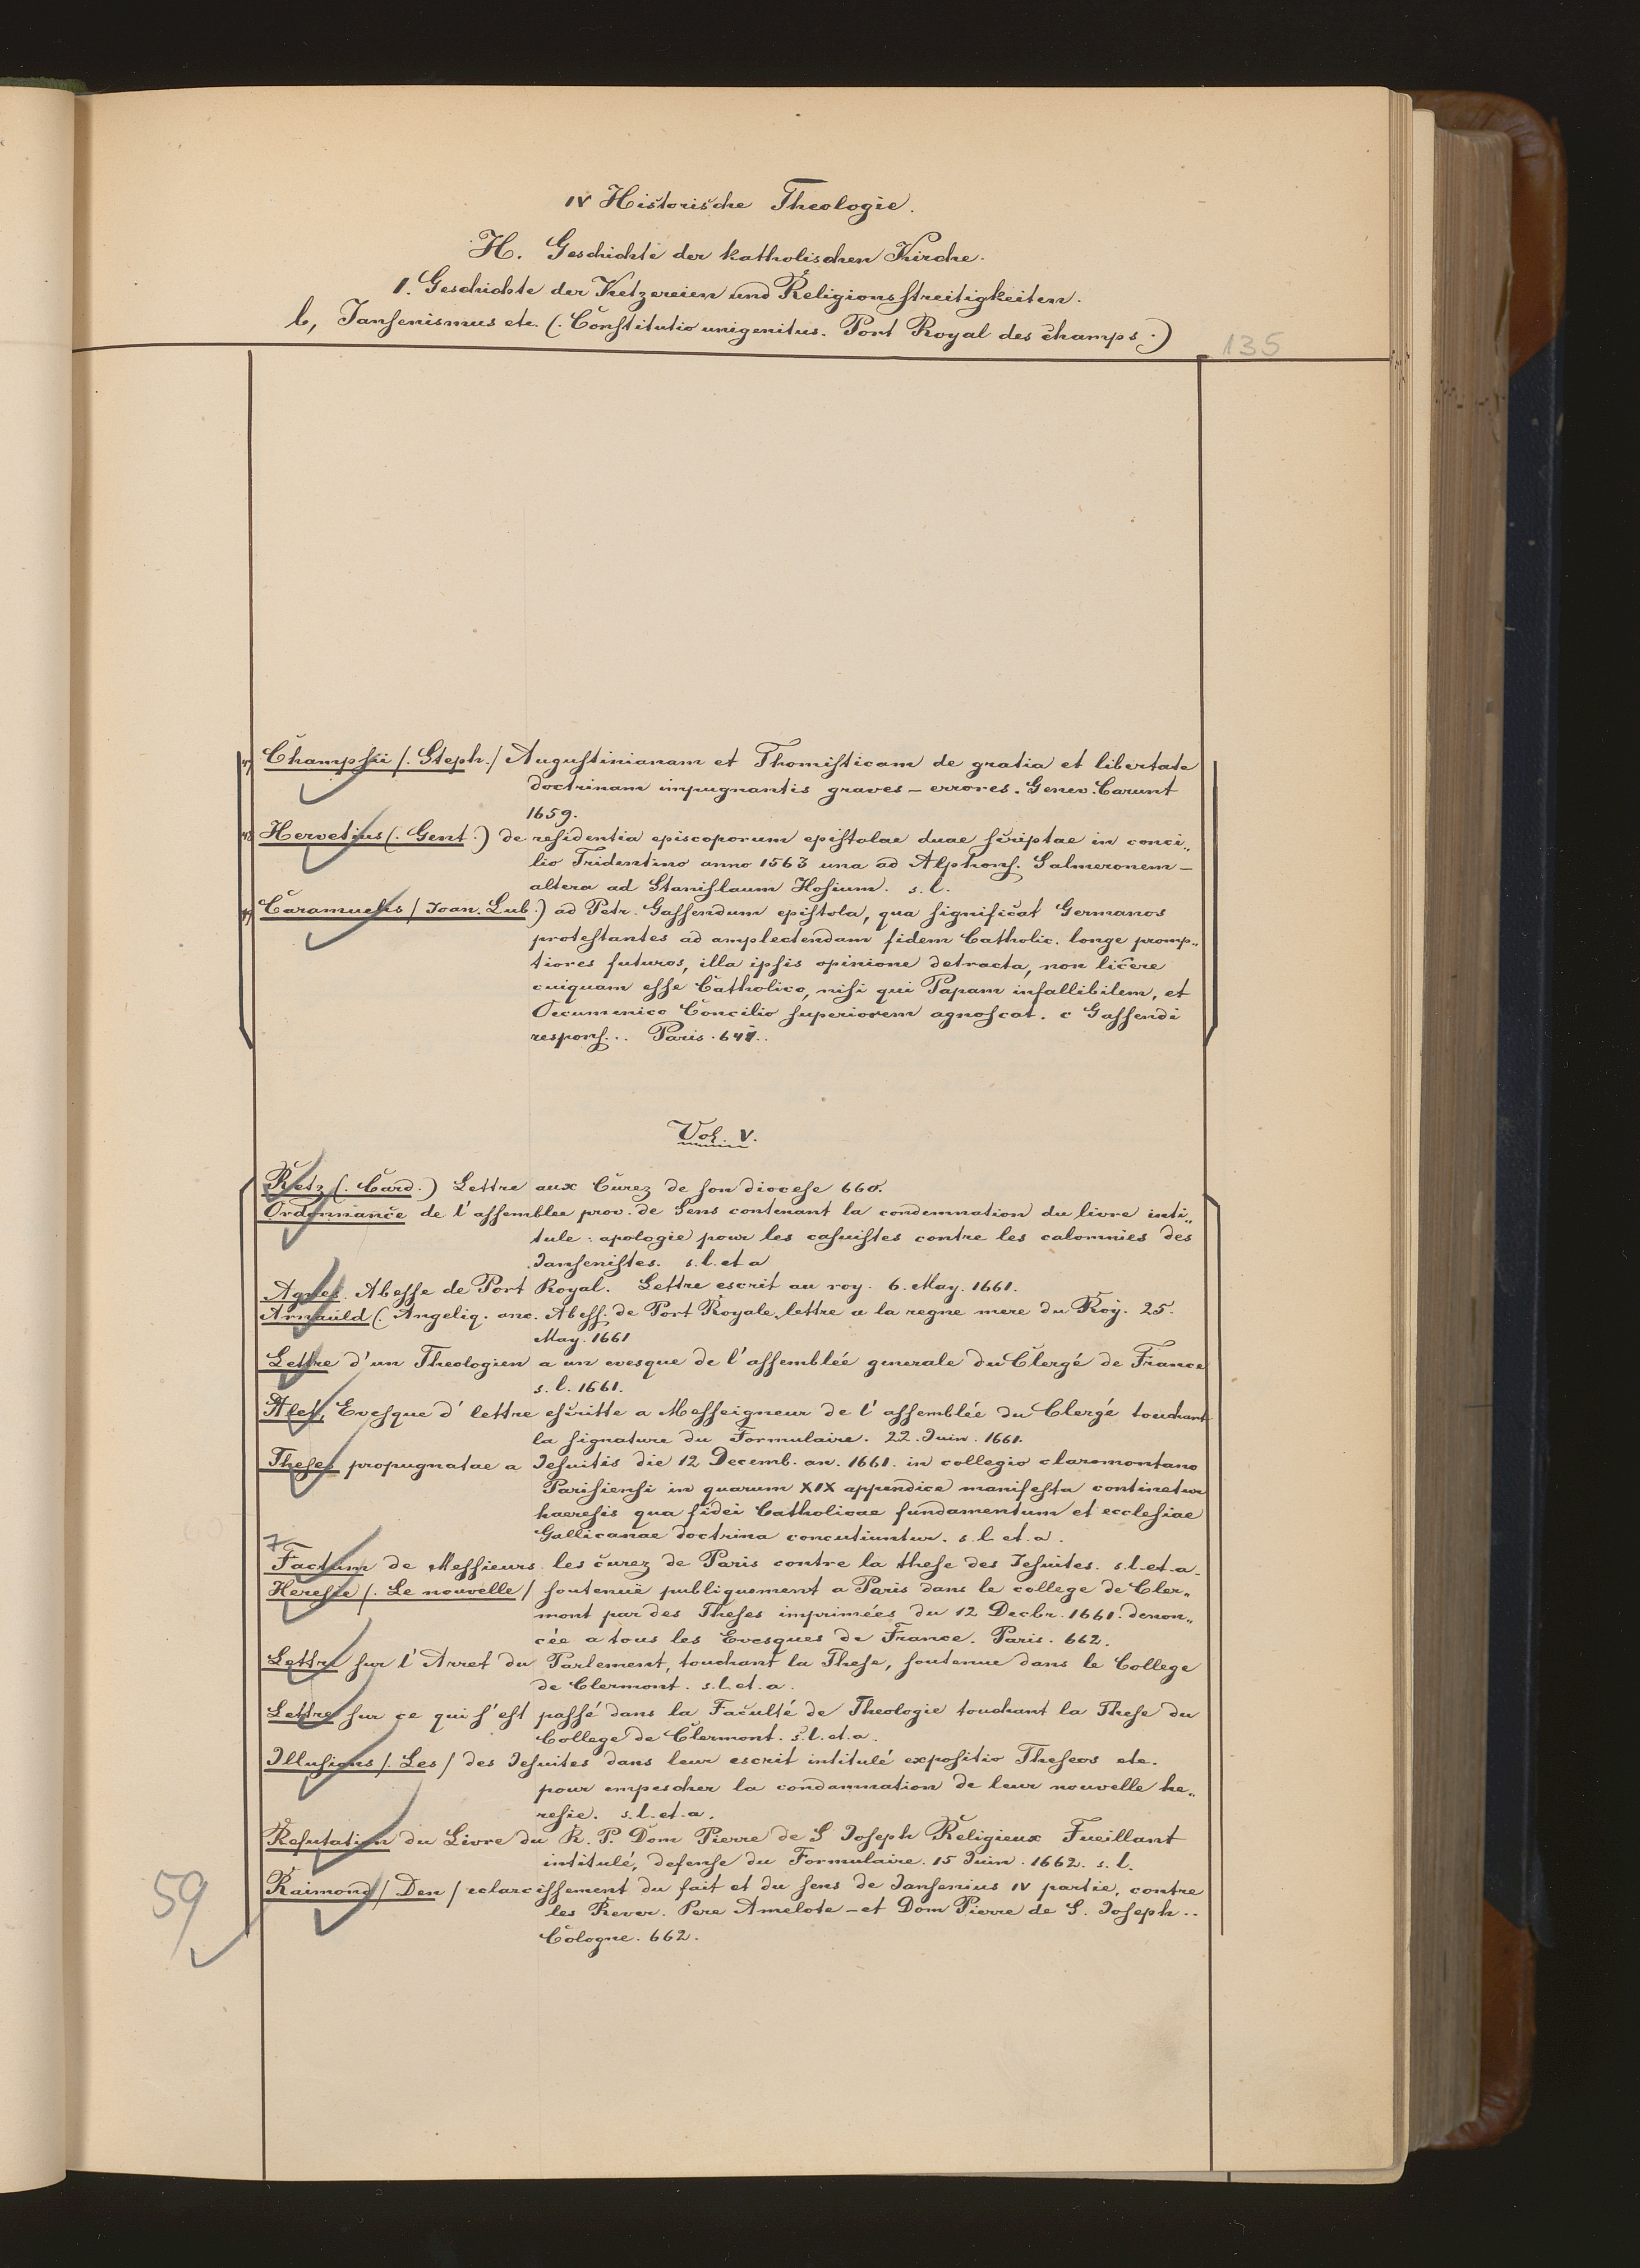 IV Historische Theologie.
H. Geschichte der katholischen Kirche.
1. Geschichte der Ketzereien und Religionsstreitigkeiten.
b, Jansenismus etc. (. Constitutio unigenitus. Port Royal des champs .)
135
Champsii /. Steph. / Augustinianam et Thomisticam de gratia et libertate
doctrinam impugnantis graves – errores. Genev. Carunt
1659.
Hervetius (. Gent .) de residentia episcoporum epistolae duae scriptae in conci„
lio Tridentino anno 1563 una ad Alphons. Salmeronem –
altera ad Stanislaum Hosium. s. l.
Caramuelis / Joan. Lub .) ad Petr. Gassendum epistola, qua significat Germanos
protestantes ad amplectendam fidem Catholic. longe promp„
tiores futuros, illa ipsis opinione detracta, non licere
cuiquam esse Catholico, nisi qui Papam infallibilem, et
Oecumenico Concilio superiorem agnoscat. c Gassendi
respons... Paris.
Vol. V.
Retz (. Card .) Lettre aux Curez de son diocese 660.
Ordonnance de l'assemblee prov. de Sens contenant la condemnation du livre inti„
tule : apologie pour les casuistes contre les calomnies des
Jansenistes. s. l. et a
Agnes. Abesse de Port Royal. Lettre escrit au roy. 6. May. 1661.
Arnauld (. Angeliq. anc. Abess. de Port Royale, lettre a la regne mere du Roy. 25.
May. 1661
Lettre d'un Theologien a un evesque de l'assemblée generale du Clergé de France
s. l. 1661.
Alet, Evesque d' lettre escritte a Messeigneur de l'assemblée du Clergé touchant
la signature du Formulaire. 22. Juin. 1661.
Theses propugnatae a Jesuitis die 12 Decemb. an. 1661. in collegio claromontano
Parisiensi in quarum XIX appendice manifesta continetur
haeresis qua fidei Catholicae fundamentum et ecclesiae
Gallicanae doctrina concutiuntur. s. l. et. a.
7
Factum de Messieurs les curez de Paris contre la these des Jesuites. s. l. et. a.
Heresie /. Le nouvelle / soutenuë publiquement a Paris dans le college de Cler„
mont par des Theses imprimées du 12 Decbr. 1661. denon„
cée a tous les Evesques de France. Paris. 662.
Lettre sur l'Arret du Parlement, touchant la These, soutenue dans le College
de Clermont. s. l. et. a.
Lettre sur ce qui s'est passé dans la Faculté de Theologie touchant la These du
College de Clermont. s. l. et. a.
Illusions /. Les / des Jesuites dans leur escrit intitulé expositio Theseos etc.
pour empescher la condamnation de leur nouvelle he„
resie. s. l. et. a.
Refutation du Livre du R. P. Dom Pierre de S Joseph Religieux Fueillant
intitulé, defense du Formulaire. 15 Juin. 1662. s. l.
Raimond / Den / eclarcissement du fait et du sens de Jansenius IV partie, contre
les Rever. Pere Amelote – et Dom Pierre de S. Joseph..
Cologne. 662.
59